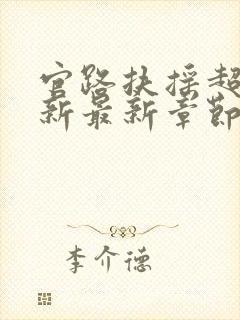 官路扶摇超
新最新章节
李介德